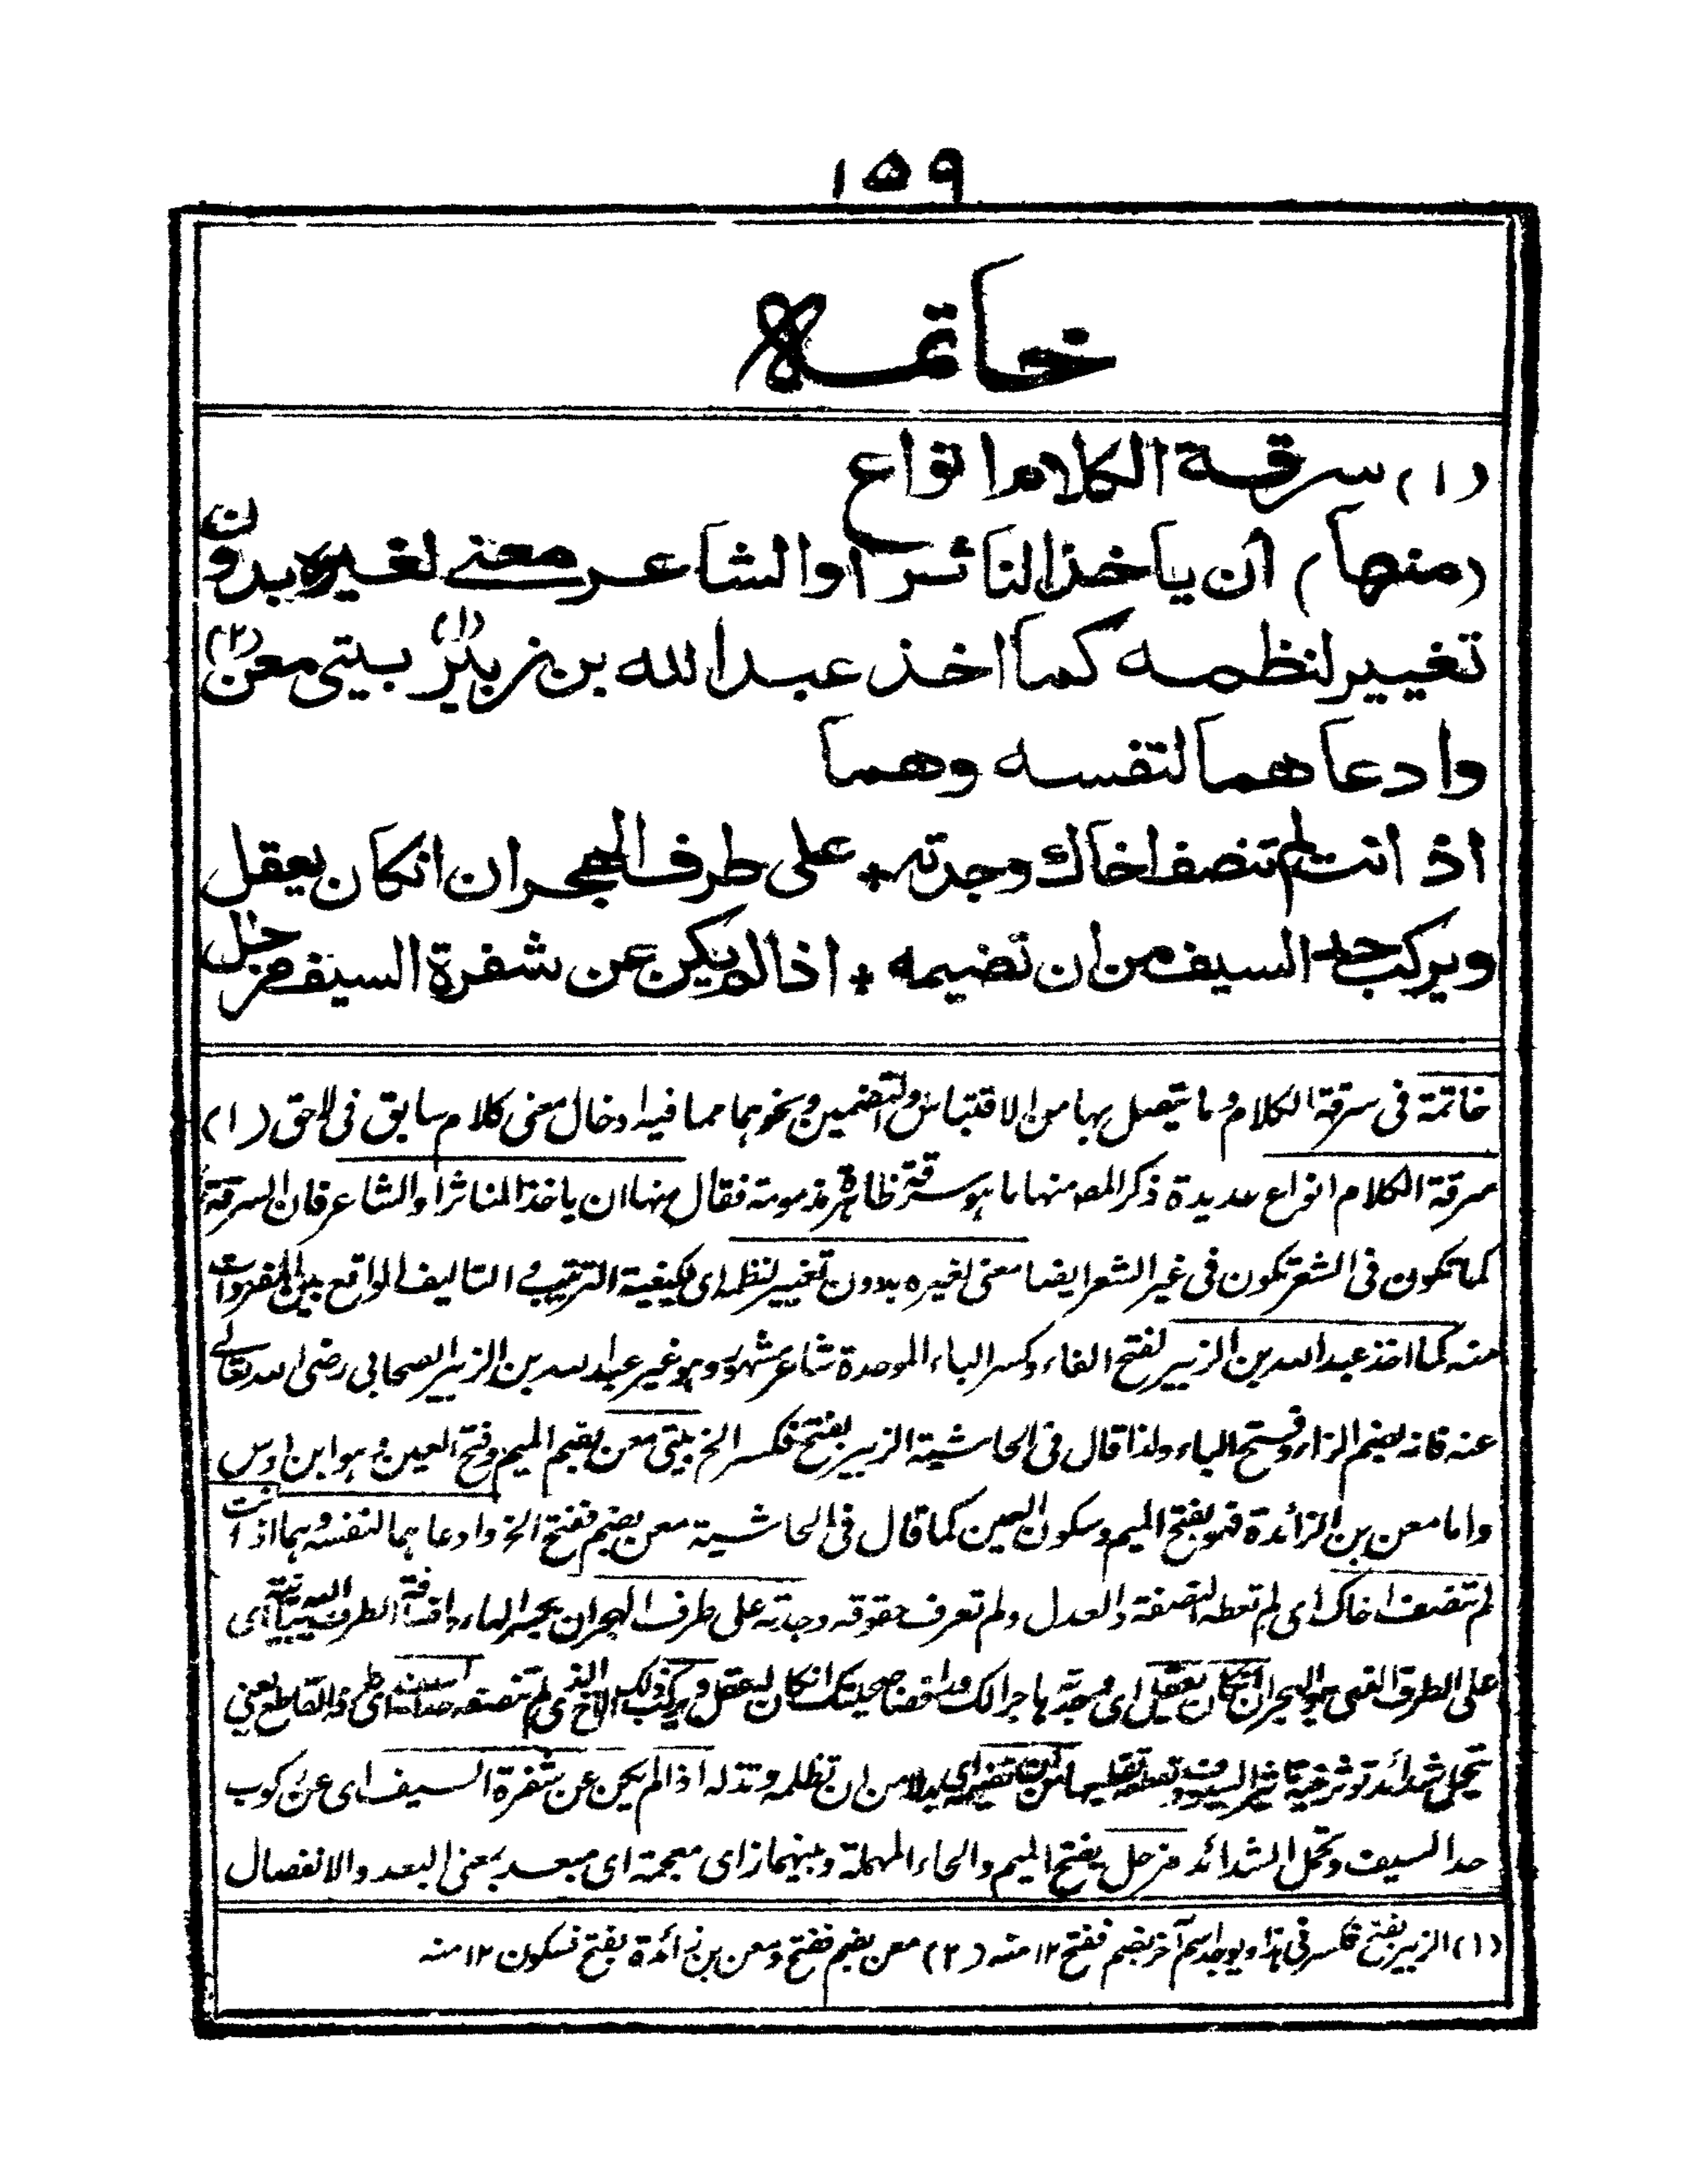 ١٥٩
خاتمه
(١) سرقة الكلام انواع
(منها) أن ياخذ الناثر او الشاعر معنى لغيره بدون
تغيير لنظمه كما اخذ عبد الله بن زبير(١) بيتى معن(٢)
وادعاهما لنفسه وهما
اذ انت لم تنصف اخاك وجدته * على طرف الهجران انكان يعقل
ويركب حد السيف من ان تضيمه * اذا لم يكن عن شفرة السيف مزحل
خاتمة فى سرقة الكلام وما يتصل بها من الاقتباس والتضمين ونحوهما مما فيه ادخال معنى كلام سابق فى لاحق (١)
سرقة الكلام انواع عديدة ذكر المصـ منها ما هو سرقة ظاهرة مذمومة فقال منها ان ياخذ الناثر او الشاعر فان السرقة
كما تكون فى الشعر تكون فى غير الشعر ايضا معنى لغيره بدون تغيير لنظمه اى لكيفية الترتيب و التاليف الواقع بين المفردات
منه كما اخذ عبد الله بن الزبير لفتح الفاء وكسر الباء الموحدة شاعر مشهور وهو غير عبد الله بن الزبير الصحابى رضى الله تعالے
عنه فانه بضم الزاء وفتح الباء ولذا قال فى الحاشية الزبير بفتح فكسر الخ بيتى معن بضم الميم وفتح العين وهو ابن اوس
واما معن بن الزائدة فهو بفتح الميم وسكون العين كما قال فى الحاشية معن بضم ففتح الخ وادعاهما لنفسه وهما اذا انت
لم تنصف اخاك اى لم تعطه النصفة والعدل ولم تعرف حقوقه وجدته على طرف الهجران بكسر الهاء واضافة الطرف اى
على الطرف الهجران انكان يعقل اى وجدته هاجرا لك انكان يعقل ويركب اى لم تنصفه حد السيف اى القاطع يعنى
تحمل شدائد تؤثر فيه تاثير السيف من ان تضيمه اى بدلا من ان تظلمه وتذله اذا لم يكن عن شفرة السيف اى عن ركوب
حد السيف وتحمل الشدائد مزحل بفتح الميم والحاء المهملة وبينهما زاى معجمة اى مبعد بمعنى البعد والانفصال
(١) الزبير بفتح فكسر فى هذا ويوجد اسم آخر بضم ففتح ١٢ منه (٢) معن بضم ففتح ومعن بن زائدة بفتح فسكون ١٢ منه